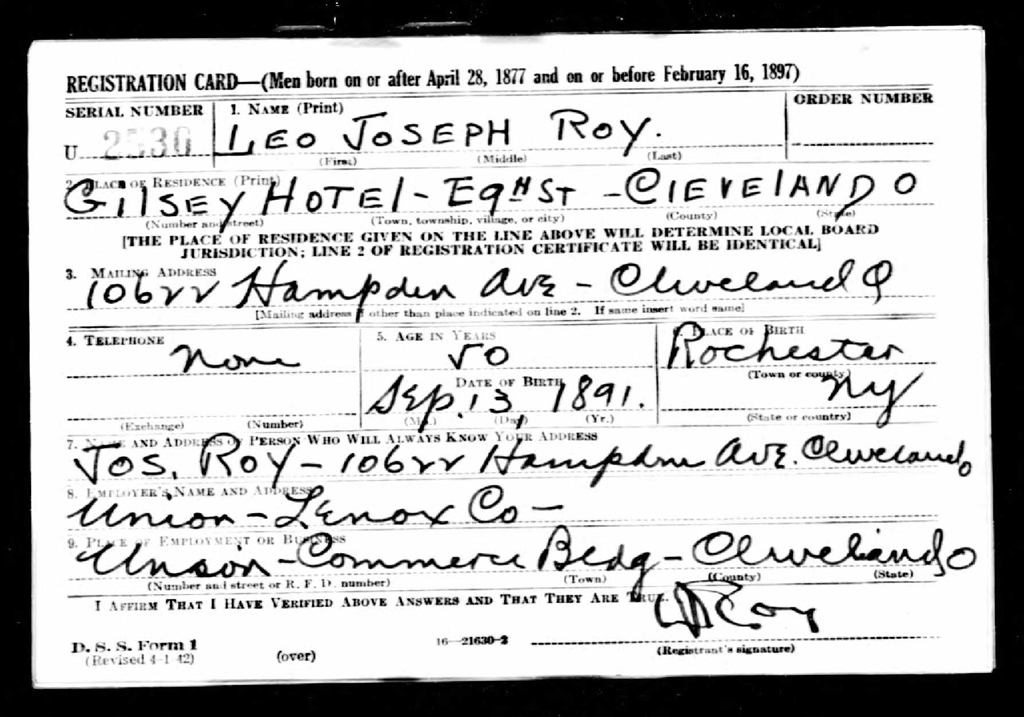 REGISTRATION CARD—(Men born on or after April 28, 1877 and on or before February 16, 1897)
SERIAL NUMBER 1. NAME (Print) ORDER NUMBER
U 2530 LEO JOSEPH ROY.
(First) (Middle) (Last)
2. PLACE OF RESIDENCE (Print)
GILSEY HOTEL - E 9TH ST - CLEVELAND O
(Number and street) (Town, township, village, or city) (County) (State)
[THE PLACE OF RESIDENCE GIVEN ON THE LINE ABOVE WILL DETERMINE LOCAL BOARD
JURISDICTION; LINE 2 OF REGISTRATION CERTIFICATE WILL BE IDENTICAL]
3. MAILING ADDRESS
10622 Hampden Ave - Cleveland O
[Mailing address if other than place indicated on line 2. If same insert word same]
4. TELEPHONE 5. AGE IN YEARS 6. PLACE OF BIRTH
None 50 Rochester
DATE OF BIRTH (Town or county)
Sep. 13, 1891. NY
(Exchange) (Number) (Mo.) (Day) (Yr.) (State or country)
7. NAME AND ADDRESS OF PERSON WHO WILL ALWAYS KNOW YOUR ADDRESS
JOS. ROY - 10622 Hampden Ave. Cleveland O
8. EMPLOYER'S NAME AND ADDRESS
Union - Lenox Co -
9. PLACE OF EMPLOYMENT OR BUSINESS
Union - Commerce Bldg - Cleveland O
(Number and street or R. F. D. number) (Town) (County) (State)
I AFFIRM THAT I HAVE VERIFIED ABOVE ANSWERS AND THAT THEY ARE TRUE.
Roy
D. S. S. Form 1
(Revised 4-1-42) (over) 16—21630-2 (Registrant's signature)